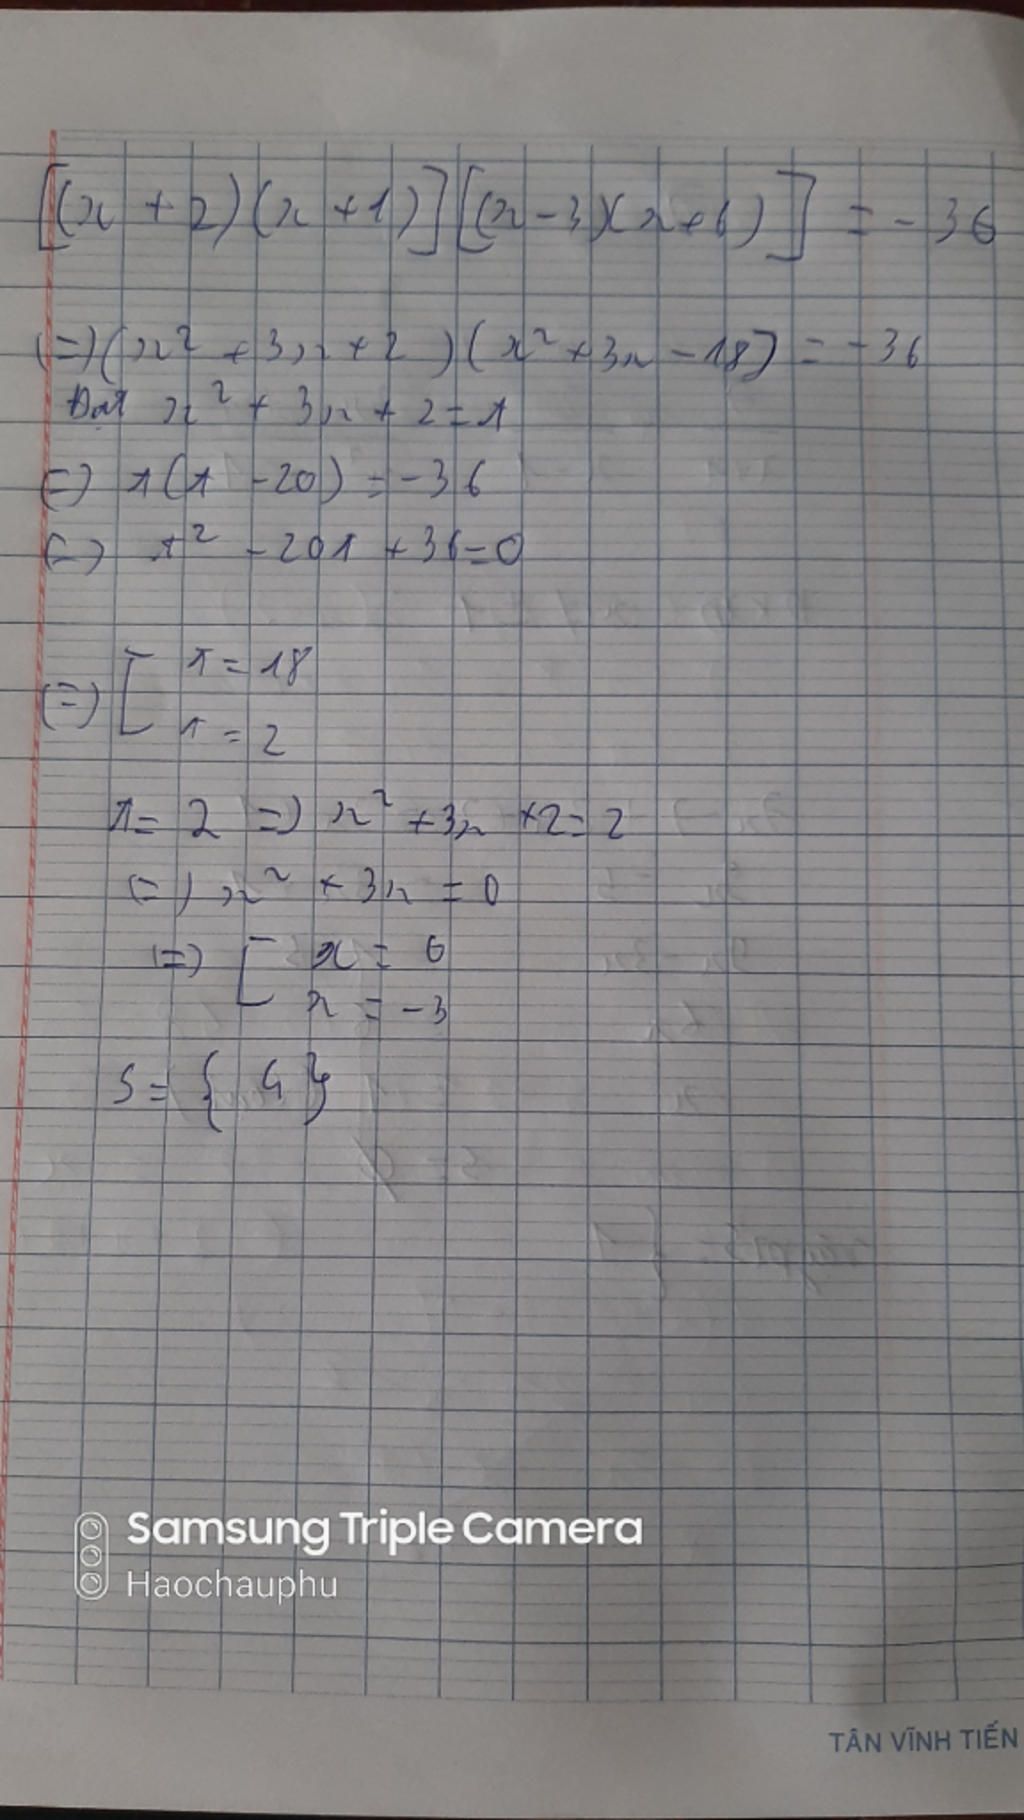 [(x + 2)(x + 1)][(x - 3)(x + 6)] = - 36
(=) (x² + 3x + 2)(x² + 3x - 18) = - 36
Đặt x² + 3x + 2 = t
=) t(t - 20) = - 36
(=) t² - 20t + 36 = 0
(=) [ t = 18
t = 2
t = 2 =) x² + 3x + 2 = 2
(=) x² + 3x = 0
(=) [ x = 0
x = - 3
S = { }
Samsung Triple Camera
Haochauphu
TÂN VĨNH TIẾN